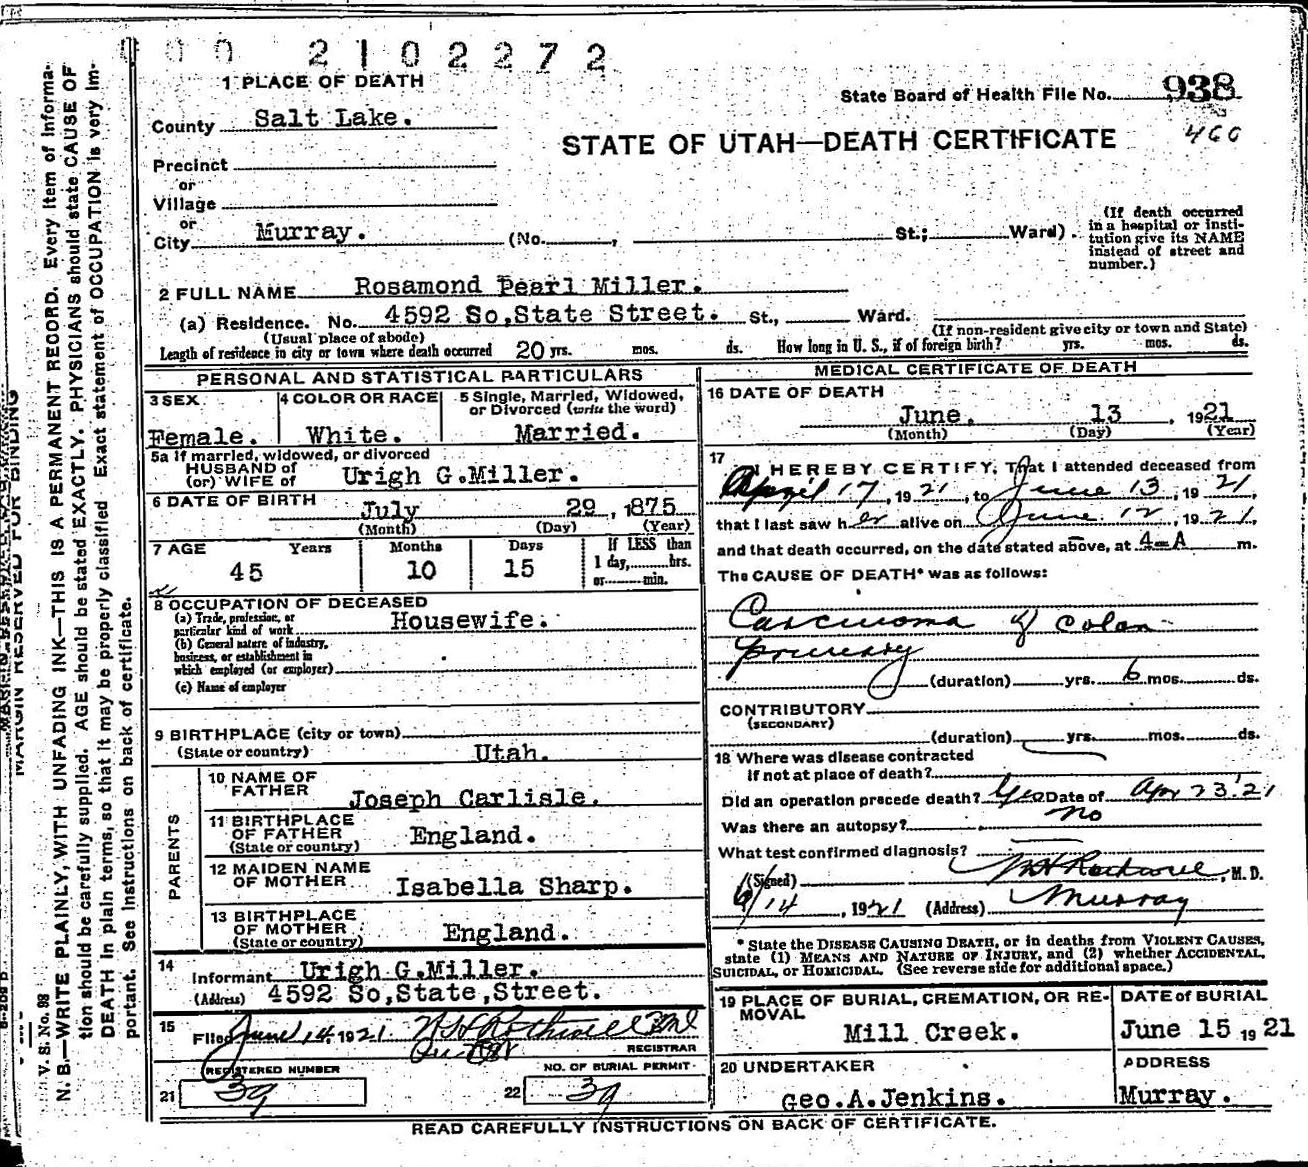 000 2102272
1 PLACE OF DEATH
County Salt Lake.
State Board of Health File No. 938
460
STATE OF UTAH—DEATH CERTIFICATE
Precinct
or
Village
or
City Murray. (No. , St.; Ward).
(If death occurred in a hospital or institution give its NAME instead of street and number.)
2 FULL NAME Rosamond Pearl Miller.
(a) Residence. No. 4592 So,State Street. St., Ward.
(Usual place of abode) (If non-resident give city or town and State)
Length of residence in city or town where death occurred 20 yrs. mos. ds. How long in U. S., if of foreign birth? yrs. mos. ds.
PERSONAL AND STATISTICAL PARTICULARS
3 SEX 4 COLOR OR RACE 5 Single, Married, Widowed, or Divorced (write the word)
Female. White. Married.
5a If married, widowed, or divorced
HUSBAND of
(or) WIFE of Urigh G.Miller.
6 DATE OF BIRTH July 29, 1875
(Month) (Day) (Year)
7 AGE Years Months Days If LESS than
45 10 15 1 day, hrs.
or min.
8 OCCUPATION OF DECEASED
(a) Trade, profession, or particular kind of work Housewife.
(b) General nature of industry, business, or establishment in which employed (or employer)
(c) Name of employer
9 BIRTHPLACE (city or town)
(State or country) Utah.
PARENTS
10 NAME OF FATHER Joseph Carlisle.
11 BIRTHPLACE OF FATHER (State or country) England.
12 MAIDEN NAME OF MOTHER Isabella Sharp.
13 BIRTHPLACE OF MOTHER (State or country) England.
14 Informant Urigh G.Miller.
(Address) 4592 So,State,Street.
15 Filed June 14, 1921
REGISTRAR
REGISTERED NUMBER NO. OF BURIAL PERMIT
21 39 22 39
MEDICAL CERTIFICATE OF DEATH
16 DATE OF DEATH
June. 13, 1921
(Month) (Day) (Year)
17 I HEREBY CERTIFY, That I attended deceased from
April 17, 1921, to June 13, 1921,
that I last saw her alive on June 12, 1921,
and that death occurred, on the date stated above, at 4-A m.
The CAUSE OF DEATH* was as follows:
Carcinoma of Colon
primary
(duration) yrs. 6 mos. ds.
CONTRIBUTORY
(SECONDARY)
(duration) yrs. mos. ds.
18 Where was disease contracted
if not at place of death?
Did an operation precede death? Yes Date of Apr 23 '21
Was there an autopsy? No
What test confirmed diagnosis?
(Signed) , M. D.
6/14, 1921 (Address) Murray
* State the DISEASE CAUSING DEATH, or in deaths from VIOLENT CAUSES,
state (1) MEANS AND NATURE OF INJURY, and (2) whether ACCIDENTAL,
SUICIDAL, or HOMICIDAL. (See reverse side for additional space.)
19 PLACE OF BURIAL, CREMATION, OR REMOVAL DATE of BURIAL
Mill Creek. June 15 1921
20 UNDERTAKER ADDRESS
Geo.A.Jenkins. Murray.
READ CAREFULLY INSTRUCTIONS ON BACK OF CERTIFICATE.
MARGIN RESERVED FOR BINDING
V. S. No. 98
N. B.—WRITE PLAINLY, WITH UNFADING INK—THIS IS A PERMANENT RECORD. Every item of informa-
tion should be carefully supplied. AGE should be stated EXACTLY. PHYSICIANS should state CAUSE OF
DEATH in plain terms, so that it may be properly classified. Exact statement of OCCUPATION is very im-
portant. See instructions on back of certificate.